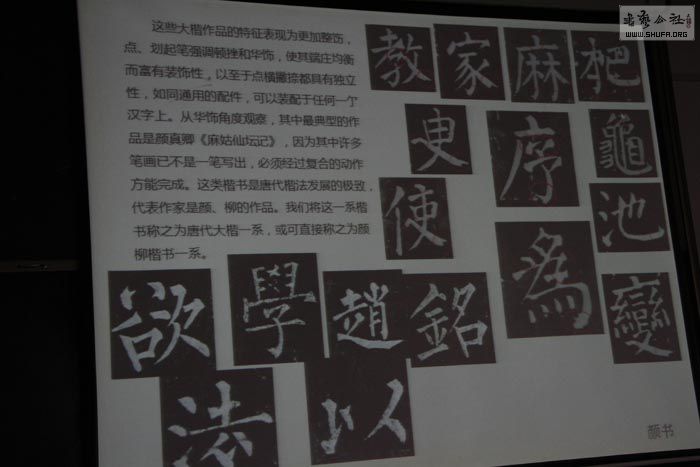 书艺公社
WWW.SHUFA.ORG
这些大楷作品的特征表现为更加整饬，
点、划起笔强调顿挫和华饰，使其端庄均衡
而富有装饰性，以至于点横撇捺都具有独立
性，如同通用的配件，可以装配于任何一个
汉字上。从华饰角度观察，其中最典型的作
品是颜真卿《麻姑仙坛记》，因为其中许多
笔画已不是一笔写出，必须经过复合的动作
方能完成。这类楷书是唐代楷法发展的极致，
代表作家是颜、柳的作品。我们将这一系楷
书称之为唐代大楷一系，或可直接称之为颜
柳楷书一系。
教 家 麻
序 龜
使 池
欲 學 趙 銘 為 變
法 以
颜书